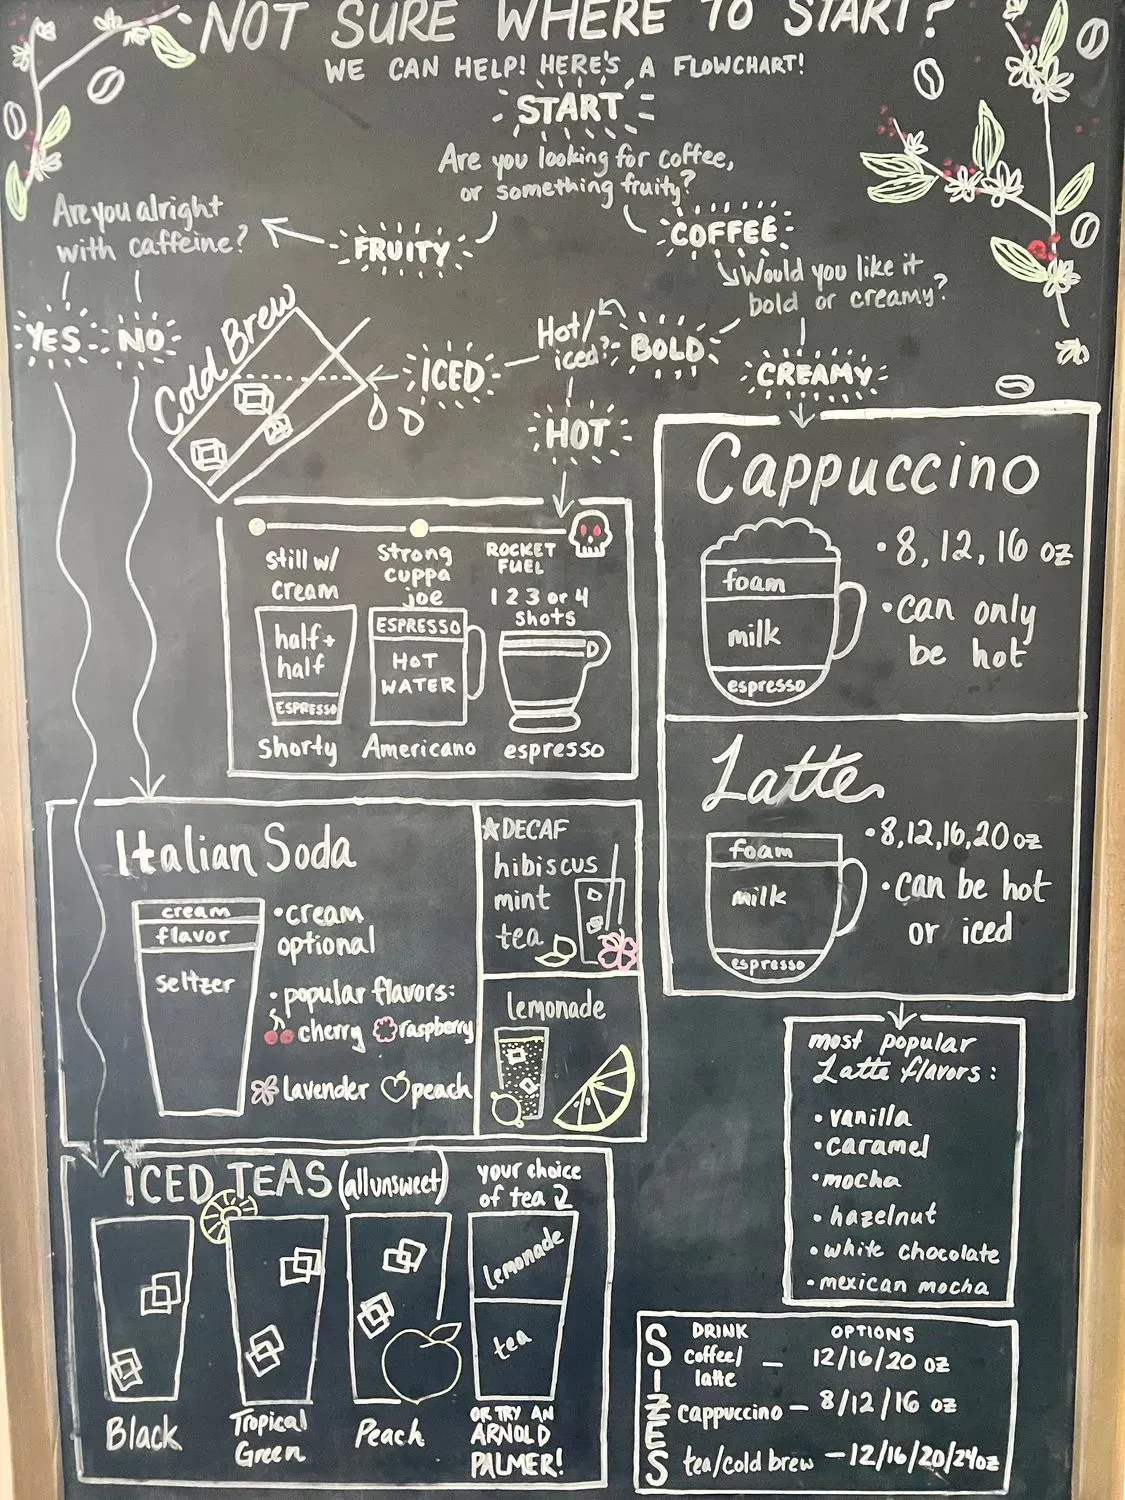 NOT SURE WHERE TO START?
WE CAN HELP! HERE'S A FLOWCHART!
START
Are you looking for coffee,
or something fruity?
FRUITY
COFFEE
Are you alright
with caffeine?
YES
NO
Would you like it
bold or creamy?
BOLD
CREAMY
Hot/
iced?
ICED
HOT
Cold Brew
still w/
cream
half +
half
ESPRESSO
Shorty
strong
cuppa
joe
ESPRESSO
HOT
WATER
Americano
ROCKET
FUEL
1 2 3 or 4
shots
espresso
Cappuccino
foam
milk
espresso
•8, 12, 16 oz
•can only
be hot
Latte
foam
milk
espresso
•8,12,16,20 oz
•can be hot
or iced
most popular
Latte flavors:
•vanilla
•caramel
•mocha
•hazelnut
•white chocolate
•mexican mocha
Italian Soda
cream
flavor
seltzer
•cream
optional
•popular flavors:
cherry raspberry
lavender peach
☆DECAF
hibiscus
mint
tea
lemonade
ICED TEAS (all unsweet)
Black
Tropical
Green
Peach
your choice
of tea
lemonade
tea
OR TRY AN
ARNOLD
PALMER!
SIZES
DRINK OPTIONS
coffee/
latte — 12/16/20 oz
cappuccino — 8/12/16 oz
tea/cold brew — 12/16/20/24oz